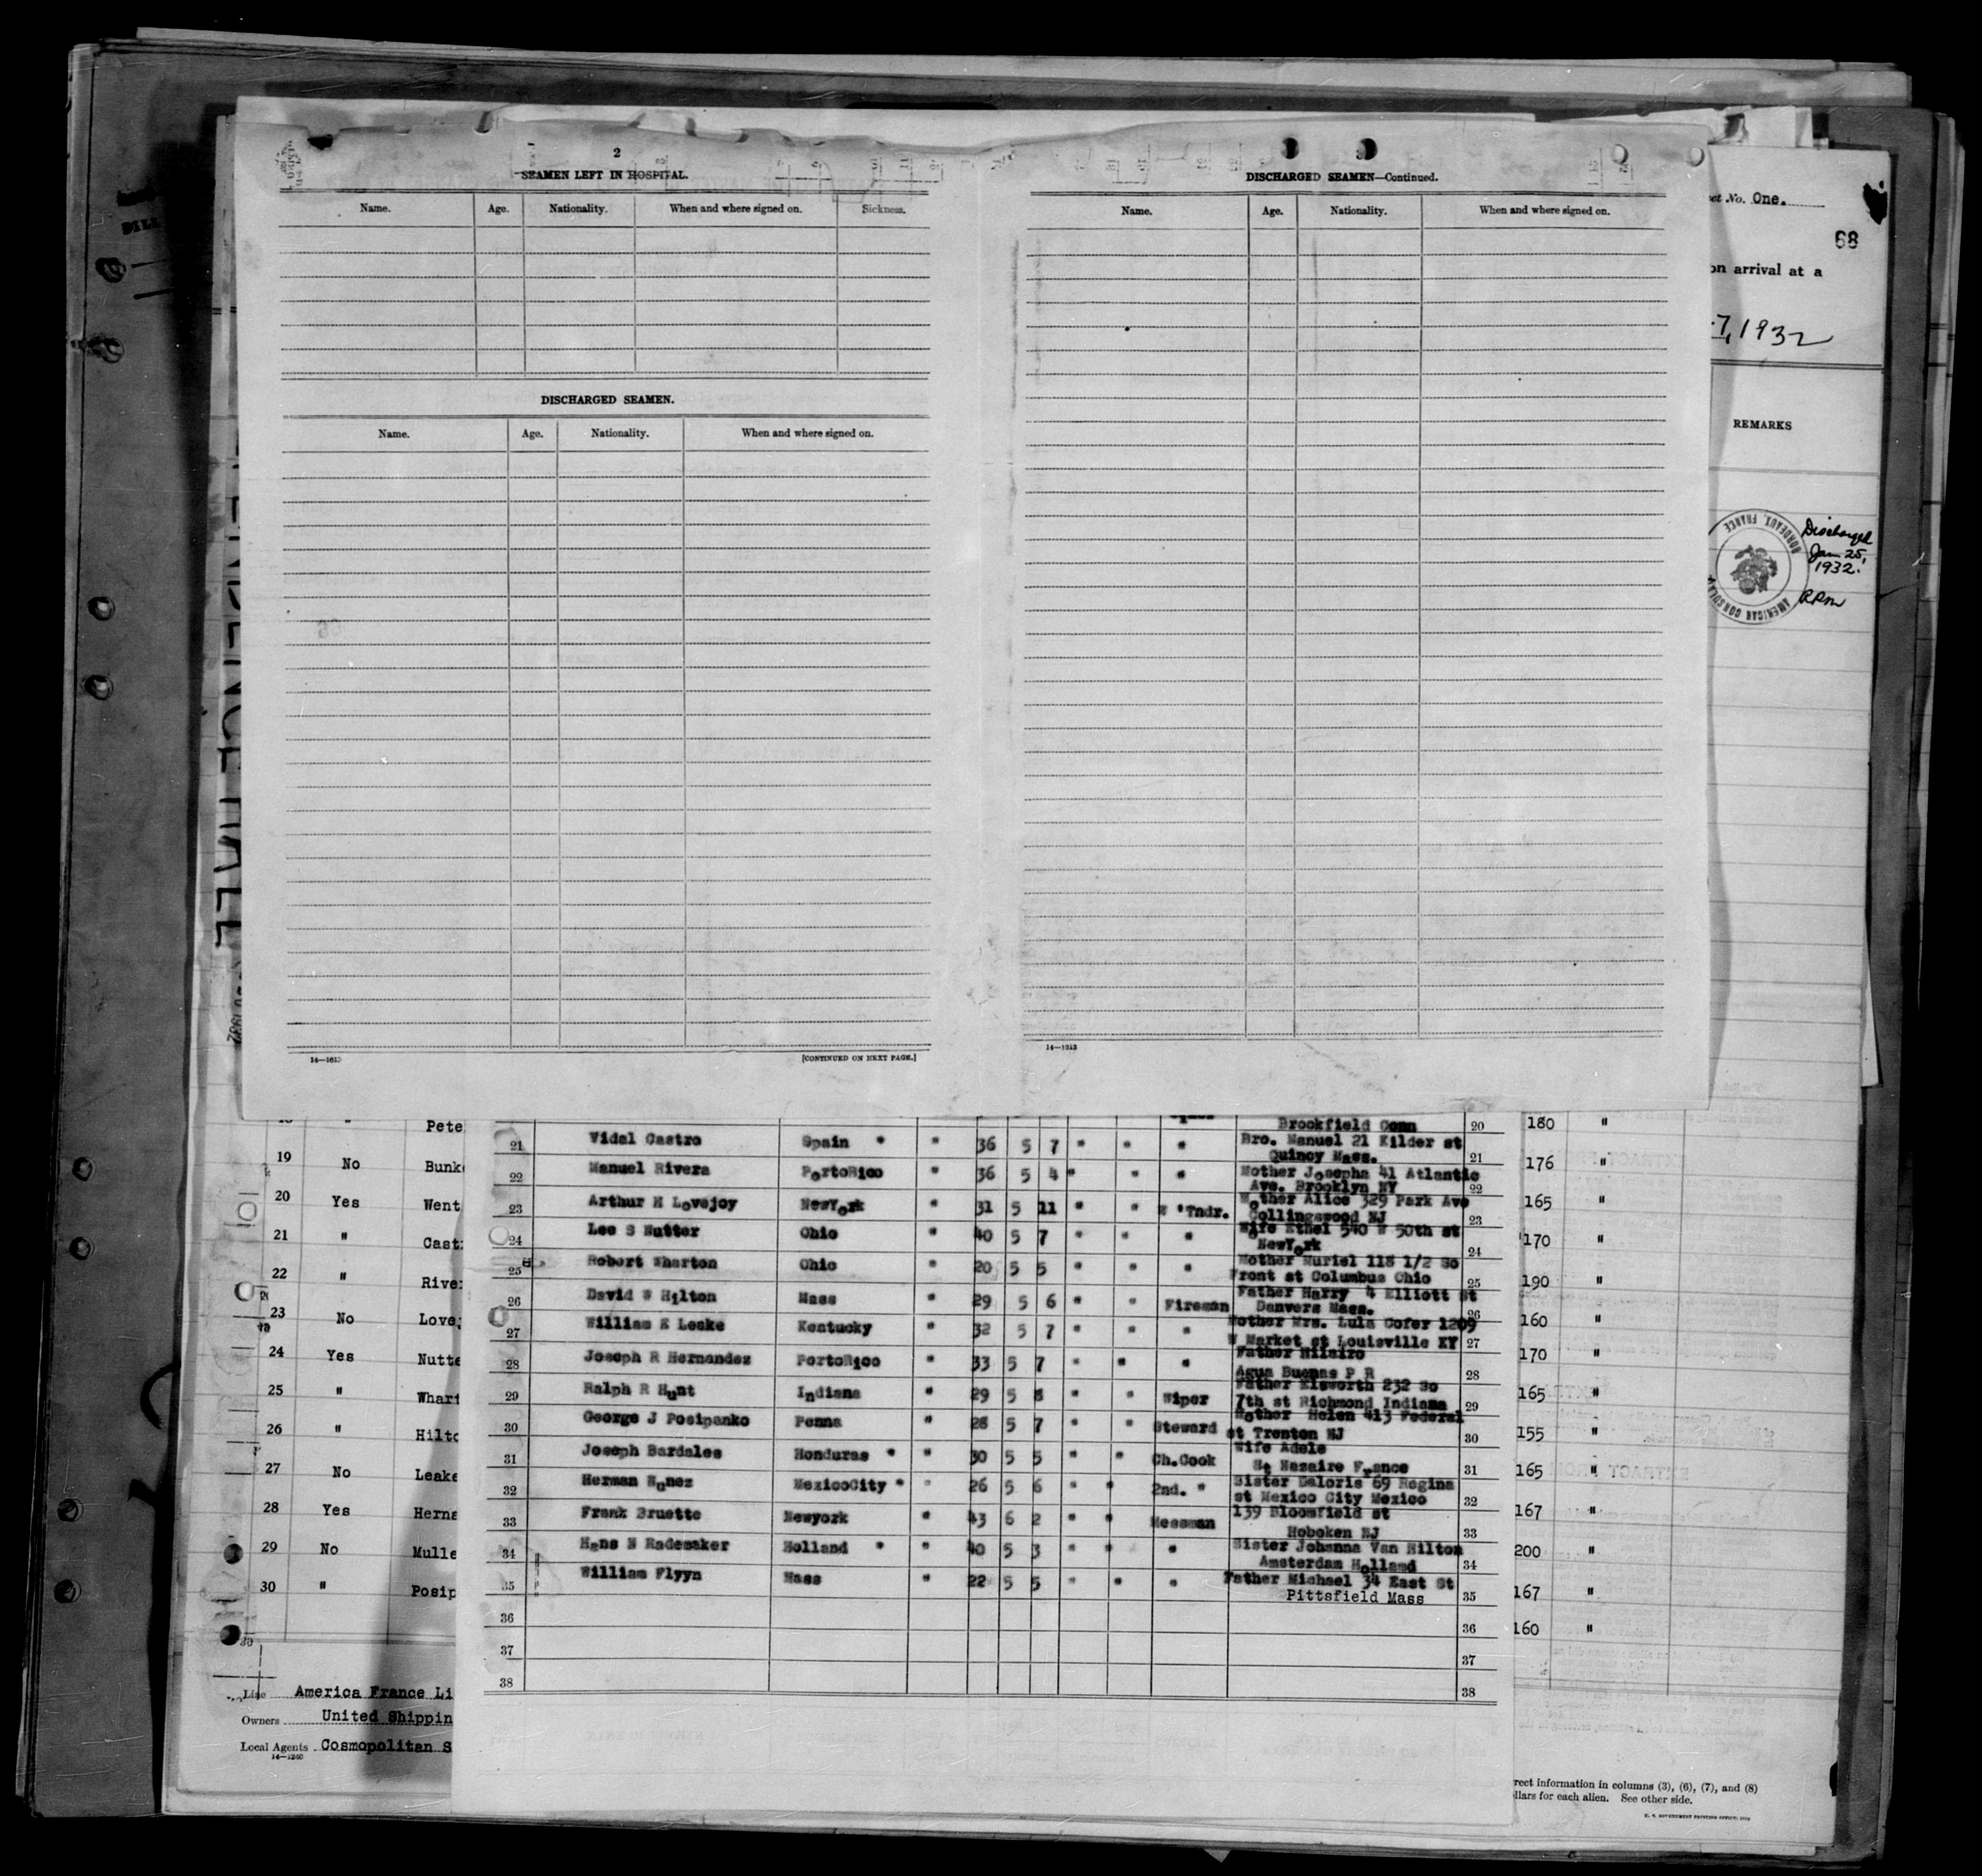 2
SEAMEN LEFT IN HOSPITAL.
Name. Age. Nationality. When and where signed on. Sickness.
DISCHARGED SEAMEN.
Name. Age. Nationality. When and where signed on.
[CONTINUED ON NEXT PAGE.]
DISCHARGED SEAMEN—Continued.
Name. Age. Nationality. When and where signed on.
14—1613
No. One.
68
on arrival at a
7, 1932
REMARKS
AMERICAN CONSULAR
BORDEAUX, FRANCE
Discharged
Jan. 25,
1932.
Pete
19 No Bunk
20 Yes Went
21 " Cast
22 " River
23 No Love
24 Yes Nutte
25 " Whart
26 " Hilto
27 No Leake
28 Yes Herna
29 No Mulle
30 " Posip
Line America France Li
Owners United Shippin
Local Agents Cosmopolitan S
14—1240
Brookfield Conn 20
21 Vidal Castro Spain * " 36 5 7 " " " Bro. Manuel 21 Kilder st
Quincy Mass. 21
22 Manuel Rivera PortoRico " 36 5 4 " " " Mother Josepha 41 Atlantic
Ave. Brooklyn NY 22
23 Arthur H Lovejoy NewYork " 31 5 11 " " "Tndr. Mother Alice 329 Park Ave
Collingswood NJ 23
24 Lee S Nutter Ohio " 40 5 7 " " " Wife Ethel 540 W 50th st
NewYork 24
25 Robert Wharton Ohio " 20 5 5 " " " Mother Muriel 118 1/2 So
Front st Columbus Ohio 25
26 David W Hilton Mass " 29 5 6 " " Fireman Father Harry 4 Elliott st
Danvers Mass. 26
27 William E Leake Kentucky " 32 5 7 " " " Mother Mrs. Lula Cofer 1209
W Market st Louisville KY 27
28 Joseph R Hernandez PortoRico " 33 5 7 " " " Father Hilairo
Agua Buenas P R 28
29 Ralph R Hunt Indiana " 29 5 8 " " Wiper Father Elsworth 232 So
7th st Richmond Indiana 29
30 George J Posipanko Penna " 28 5 7 " " Steward Mother Helen 413 Federal
st Trenton NJ 30
31 Joseph Bardales Honduras * " 30 5 5 " " Ch.Cook Wife Adele
St Nazaire France 31
32 Herman Nunez MexicoCity * " 26 5 6 " " 2nd. " Sister Daloris 69 Regina
st Mexico City Mexico 32
33 Frank Bruette Newyork " 43 6 2 " " Messman 139 Bloomfield st
Hoboken NJ 33
34 Hans N Rademaker Holland * " 40 5 3 " " " Sister Johanna Van Hilton
Amsterdam Holland 34
35 William Flyyn Mass " 22 5 5 " " " Father Michael 34 East St
Pittsfield Mass 35
36 36
37 37
38 38
180 "
176 "
165 "
170 "
190 "
160 "
170 "
165 "
155 "
165 "
167 "
200 "
167 "
160 "
rect information in columns (3), (6), (7), and (8)
ollars for each alien. See other side.
U. S. GOVERNMENT PRINTING OFFICE: